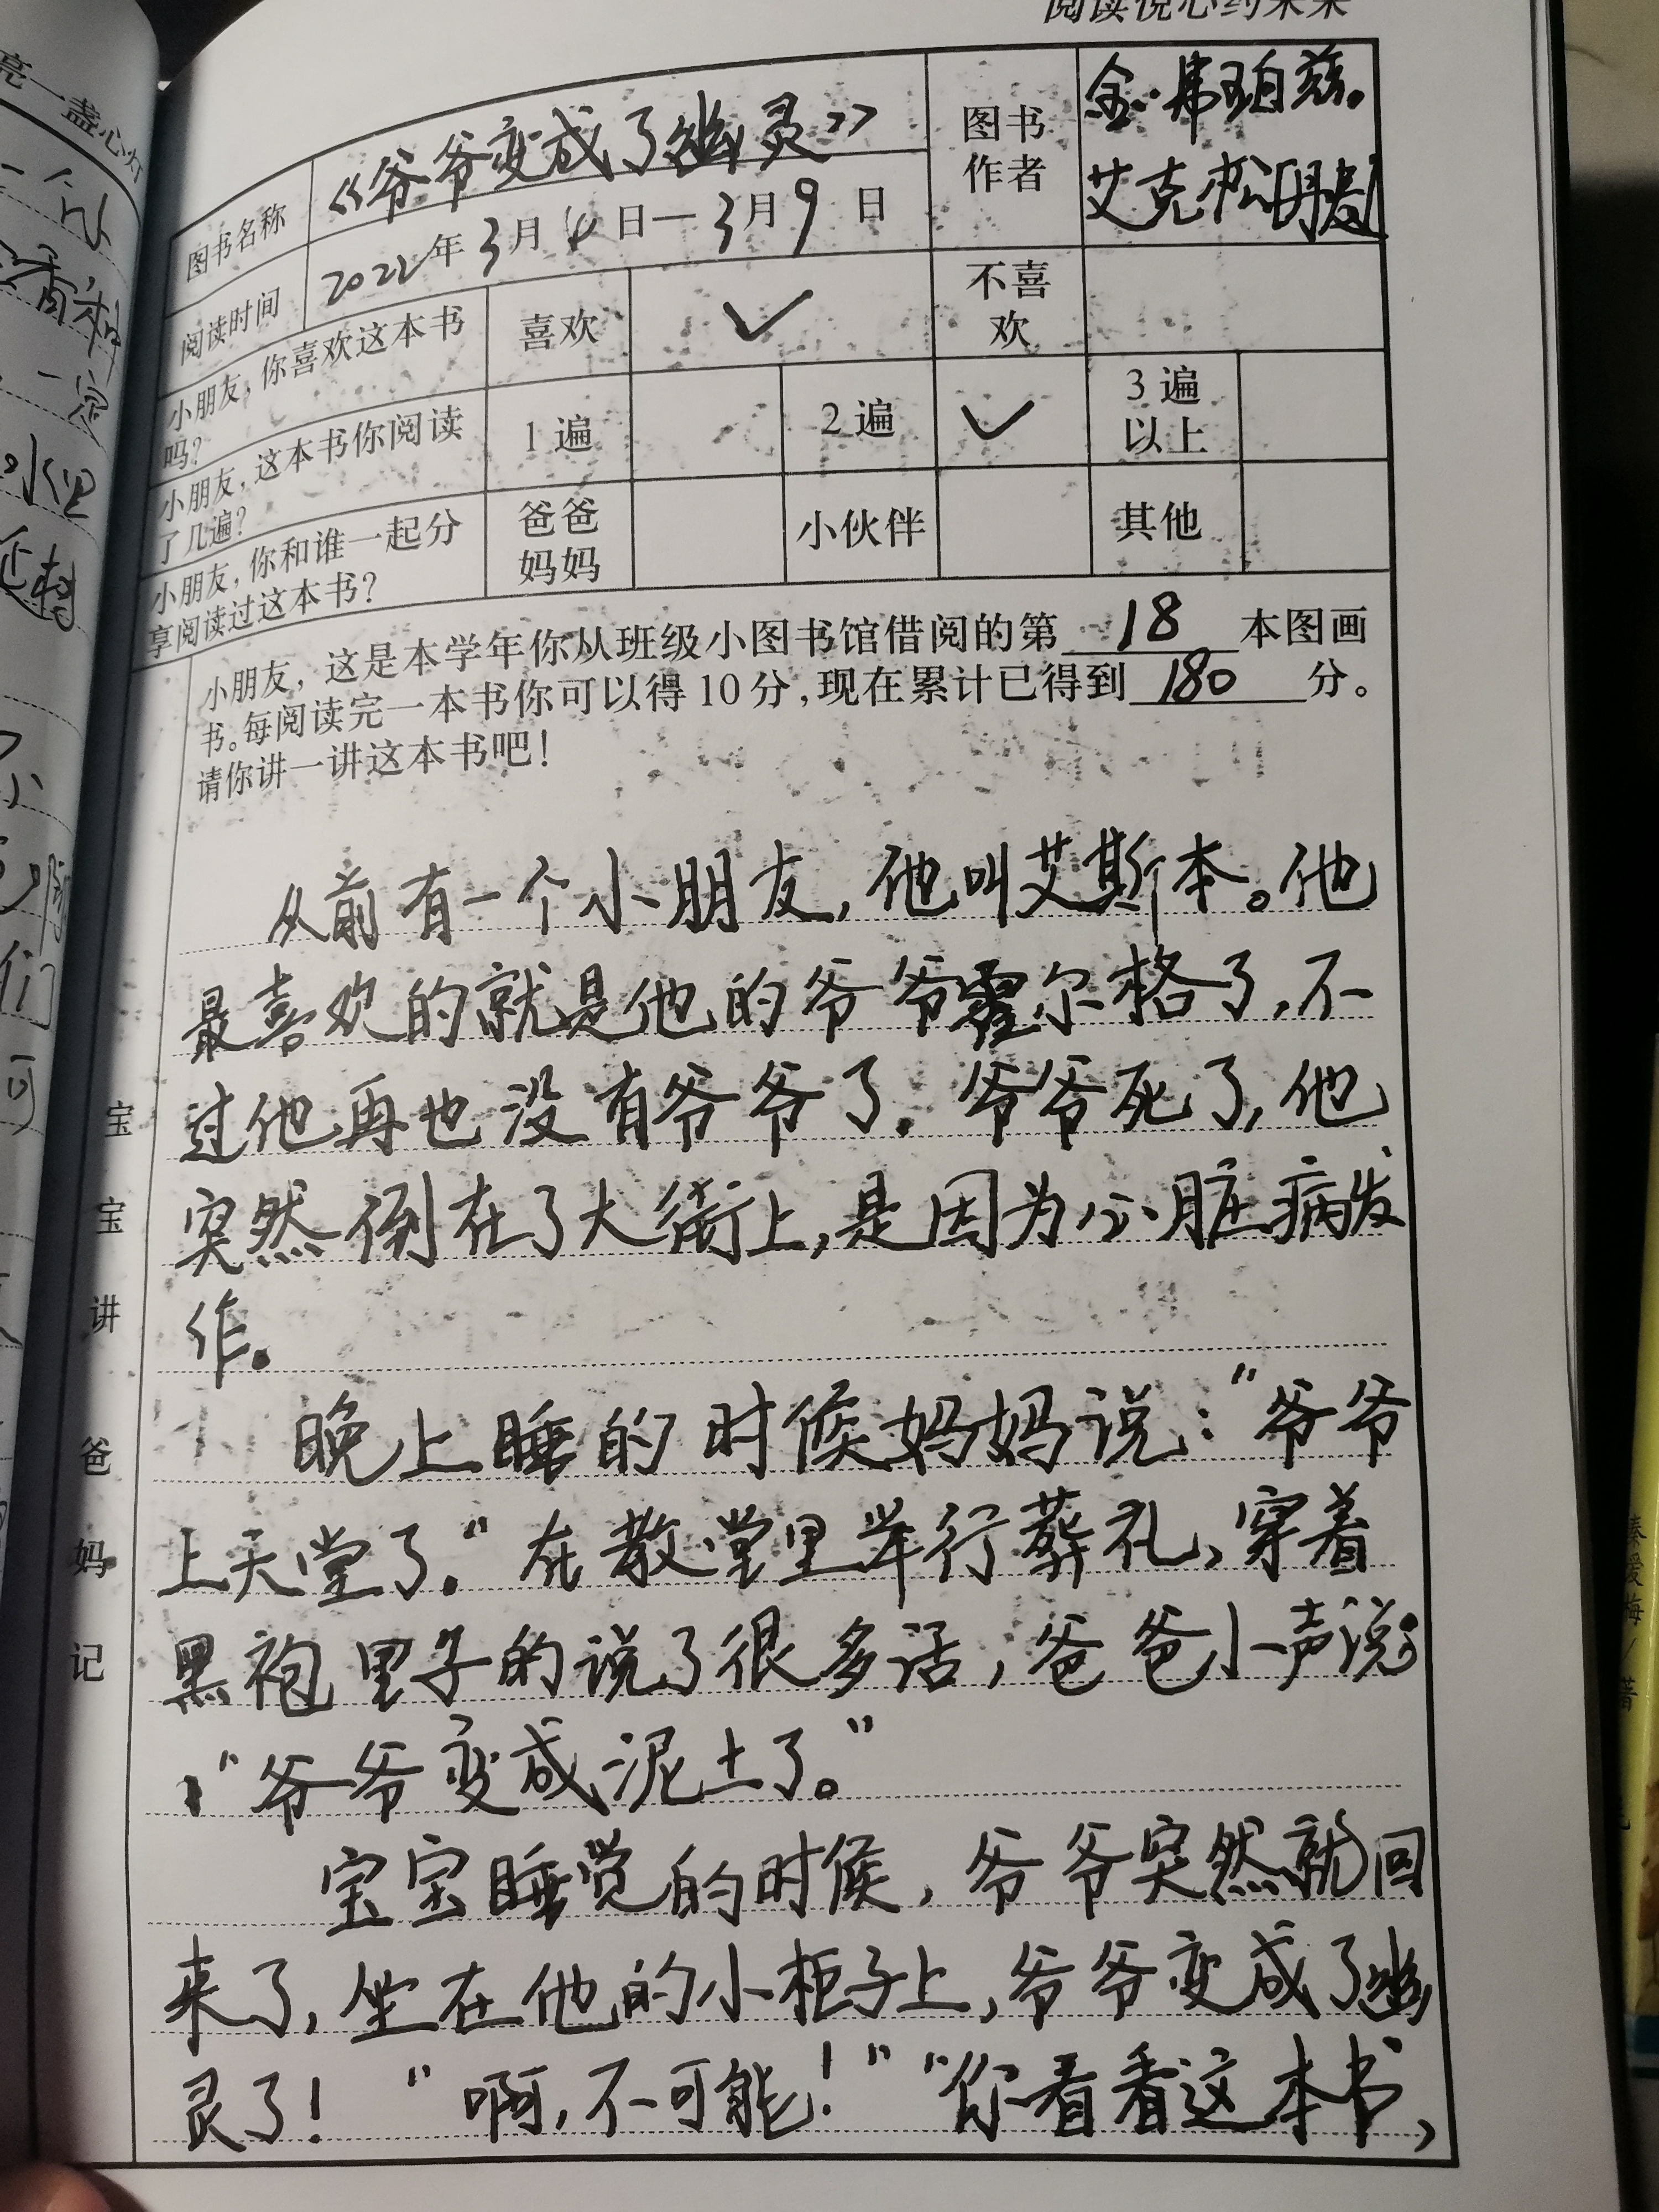 阅读悦心约未来
亮一盏心灯
图书名称
《爷爷变成了幽灵》
图书
作者
金·弗珀兹.
艾克松[丹麦]
阅读时间
2022年3月4日—3月9日
小朋友,你喜欢这本书
吗?
喜欢
✓
不喜
欢
小朋友,这本书你阅读
了几遍?
1遍
2遍
✓
3遍
以上
小朋友,你和谁一起分
享阅读过这本书?
爸爸
妈妈
小伙伴
其他
小朋友,这是本学年你从班级小图书馆借阅的第 18 本图画
书。每阅读完一本书你可以得10分,现在累计已得到 180 分。
请你讲一讲这本书吧!
宝宝讲 爸妈记
从前有一个小朋友,他叫艾斯本。他
最喜欢的就是他的爷爷霍尔格了,不
过他再也没有爷爷了。爷爷死了,他
突然倒在了大街上,是因为心脏病发
作。
晚上睡的时候妈妈说:"爷爷
上天堂了。"在教堂里举行葬礼,穿着
黑袍里子的说了很多话,爸爸小声说
:"爷爷变成泥土了。"
宝宝睡觉的时候,爷爷突然就回
来了,坐在他的小柜子上,爷爷变成了幽
灵了! "啊,不可能!" "你看看这本书,
秦爱梅/著